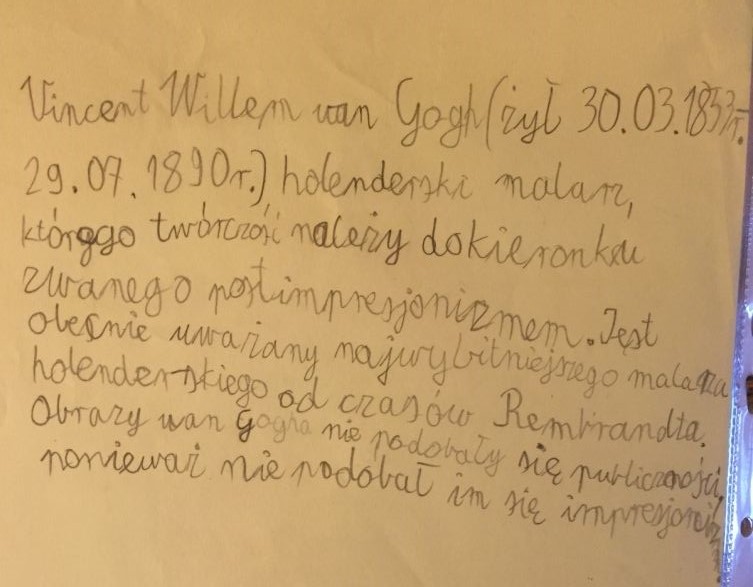 Vincent Willem wan Gogh (żył 30.03.1853r.
29.07.1890r.) holenderski malarz,
którego twórczość należy dokieronku
zwanego postimpresjonizmem. Jest
obecnie uważany najwybitniejszego malarza
holenderskiego od czasów Rembrandta.
Obrazy wan Gogha nie podobały się publiczności,
ponieważ nie podobał im się